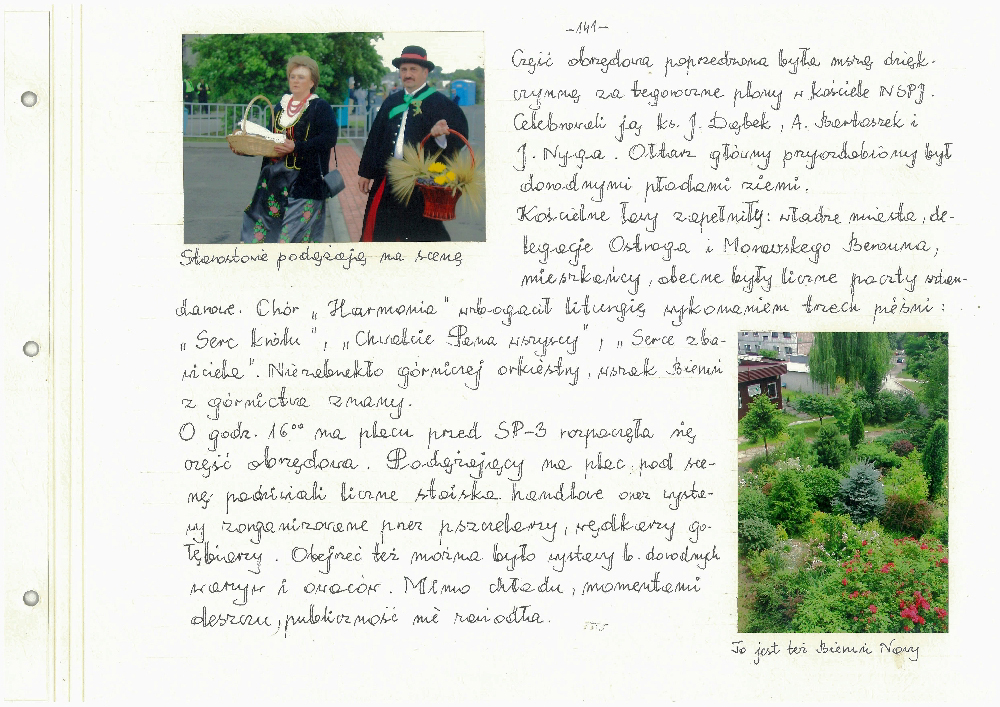 -141-
Część obrzędowa poprzedzona była mszą dzięk-
czynną za tegoroczne plony w kościele NSPJ.
Celebrowali ją ks. J. Dąbek, A. Bartoszek i
J. Nyga. Ołtarz główny przyozdobiony był
dorodnymi płodami ziemi.
Kościelne ławy zapełniły: władze miasta, de-
legacje Ostroga i Morawskiego Berouna,
mieszkańcy, obecne były liczne poczty sztan-
darowe. Chór „Harmonia" wzbogacił liturgię wykonaniem trzech pieśni:
„Serc królu", „Chwalcie Pana wszyscy", „Serce zba-
wiciela". Nie zabrakło górniczej orkiestry, wszak Bieruń
z górnictwa znany.
O godz. 16⁰⁰ na placu przed SP-3 rozpoczęła się
część obrzędowa. Podążający na plac pod sce-
nę podziwiali liczne stoiska handlowe oraz wysta-
wy zorganizowane przez pszczelarzy, wędkarzy go-
łębiarzy. Obejrzeć też można było wystawy b. dorodnych
warzyw i owoców. Mimo chłodu, momentami
deszczu, publiczność nie zawiodła.
Starostowie podążają na scenę
To jest też Bieruń Nowy